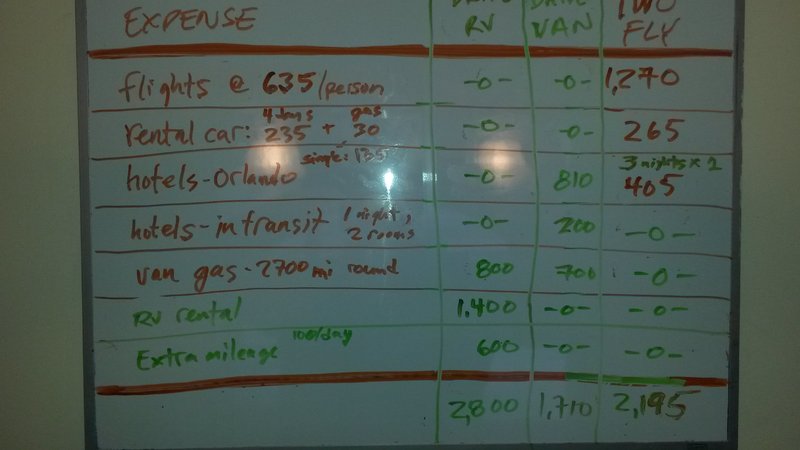 EXPENSE RV VAN TWO FLY
flights @ 635/person -0- -0- 1,270
4 days gas
rental car: 235 + 30 -0- -0- 265
single: 135 3 nights x 1
hotels-Orlando -0- 810 405
hotels-in transit 1 night, 2 rooms -0- 200 -0-
van gas-2700 mi round 800 700 -0-
RV rental 1,400 -0- -0-
Extra mileage 100/day 600 -0- -0-
2,800 1,710 2,195